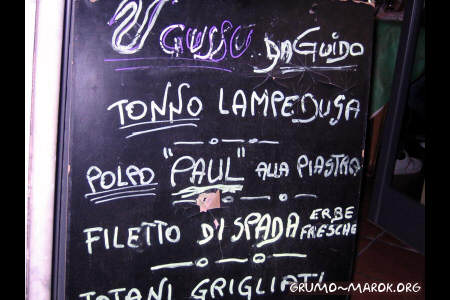 U GUSSU DA GUIDO
TONNO LAMPEDUSA
POLPO "PAUL" ALLA PIASTRA
FILETTO DI SPADA ERBE FRESCHE
TOTANI GRIGLIATI
GRUMO~MAROK.ORG